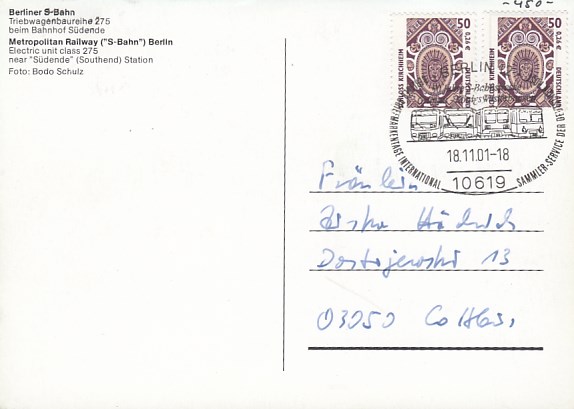 -450-
Berliner S-Bahn
Triebwagenbaureihe 275
beim Bahnhof Südende
Metropolitan Railway ("S-Bahn") Berlin
Electric unit class 275
near "Südende" (Southend) Station
Foto: Bodo Schulz
50 0,26 € SCHLOSS KIRCHHEIM DEUTSCHLAND
50 0,26 € DEUTSCHLAND
BERLIN 12
BRIEFMARKENTAGE INTERNATIONAL
SAMMLER-SERVICE DER
18.11.01-18
10619
Fräulein
Dostojewski 13
03050 Cottbus